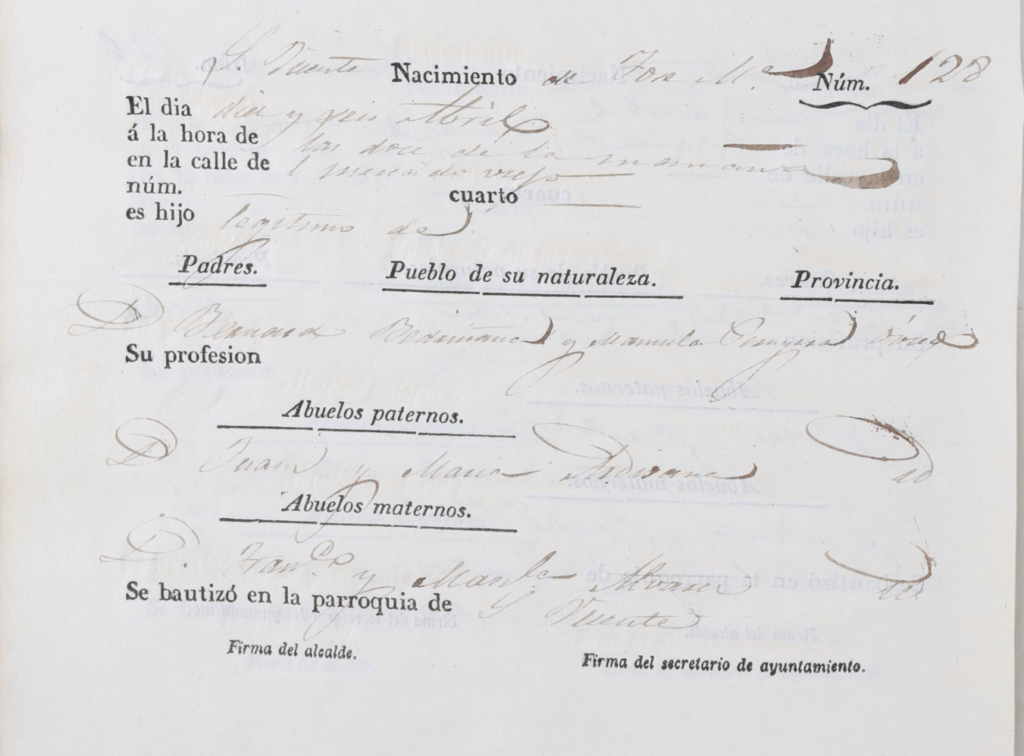 S. Vicente Nacimiento de Jose Ma. Núm. 128
El dia diez y seis Abril
á la hora de las doce de la mañana
en la calle de l mercado viejo
núm. cuarto
es hijo legitimo de
Padres. Pueblo de su naturaleza. Provincia.
D Bernardo y Manuela
Su profesion
Abuelos paternos.
D Juan y Maria id
Abuelos maternos.
D. Franco y Manla Alvarez
Se bautizó en la parroquia de S Vicente
Firma del alcalde. Firma del secretario de ayuntamiento.